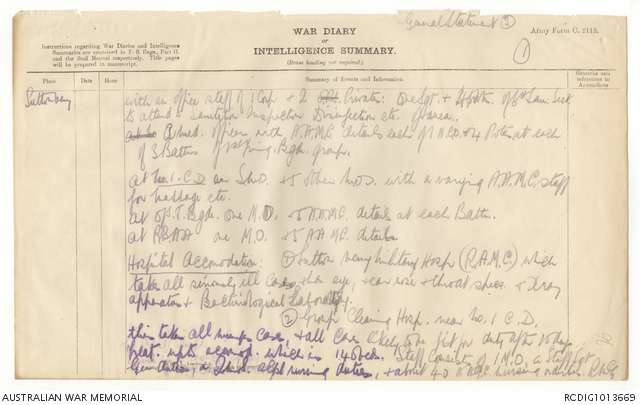 General Statement ③
①
Army Form C. 2118.
WAR DIARY
or
INTELLIGENCE SUMMARY.
(Erase heading not required.)
Instructions regarding War Diaries and Intelligence
Summaries are contained in F. S. Regs., Part II.
and the Staff Manual respectively. Title pages
will be prepared in manuscript.
Place Date Hour Summary of Events and Information Remarks and references to Appendices
Sutton Veny
with an office staff of 1 Corp & 2 Privates. One Sgt. & of San. Sect
to attend Sanitation Inspection Disinfection etc. of area.
A med. officer with A.A.M.C. details each of 1 N.C.O. & 4 Ptes at each
of 3 Battns of Bgde group.
At No. 1 C.D. an S.M.O. & 5 other M.O's. with a varying A.A.M.C. staff
for massage etc.
At O/S. T. Bgde. one M.O. & 5 A.A.M.C. details at each Battn.
At one M.O. & 5 A.A.M.C. details
Hospital Accomodation: ① Sutton Veny Military Hosp (R.A.M.C.) which
take all seriously ill cases, & has eye, ear nose & throat & Xray
apparatus & Bacteriological Laboratory.
② Group Clearing Hosp. near No. 1 C.D.
this takes all mumps cases, & all cases likely to be fit for duty after
treat. up to accomod. which is 140 beds. Staff consists of 1 M.O, a Staff Sgt
duties, & about 40 nursing
AUSTRALIAN WAR MEMORIAL
RCDIG1013669